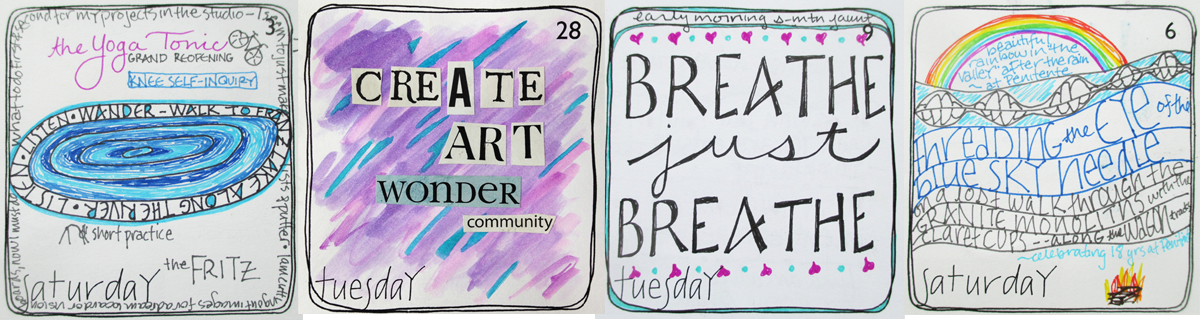 3
the Yoga Tonic
GRAND REOPENING
KNEE SELF-INQUIRY
LISTEN • WANDER - WALK TO FRANZ LAKE ALONG THE RIVER • LISTEN
short practice
the FRITZ
saturday
28
CREATE
ART
WONDER
community
tuesday
early morning s-mtn jaunt
9
BREATHE
just
BREATHE
tuesday
6
beautiful
rainbow in the
valley after the rain
~ at Penitente
threading the EYE of the
blue sky needle
on a post walk through the
GRANITE monoliths with the
claret cups -- along the wagon tracks
~celebrating 18 yrs at Penitente
saturday